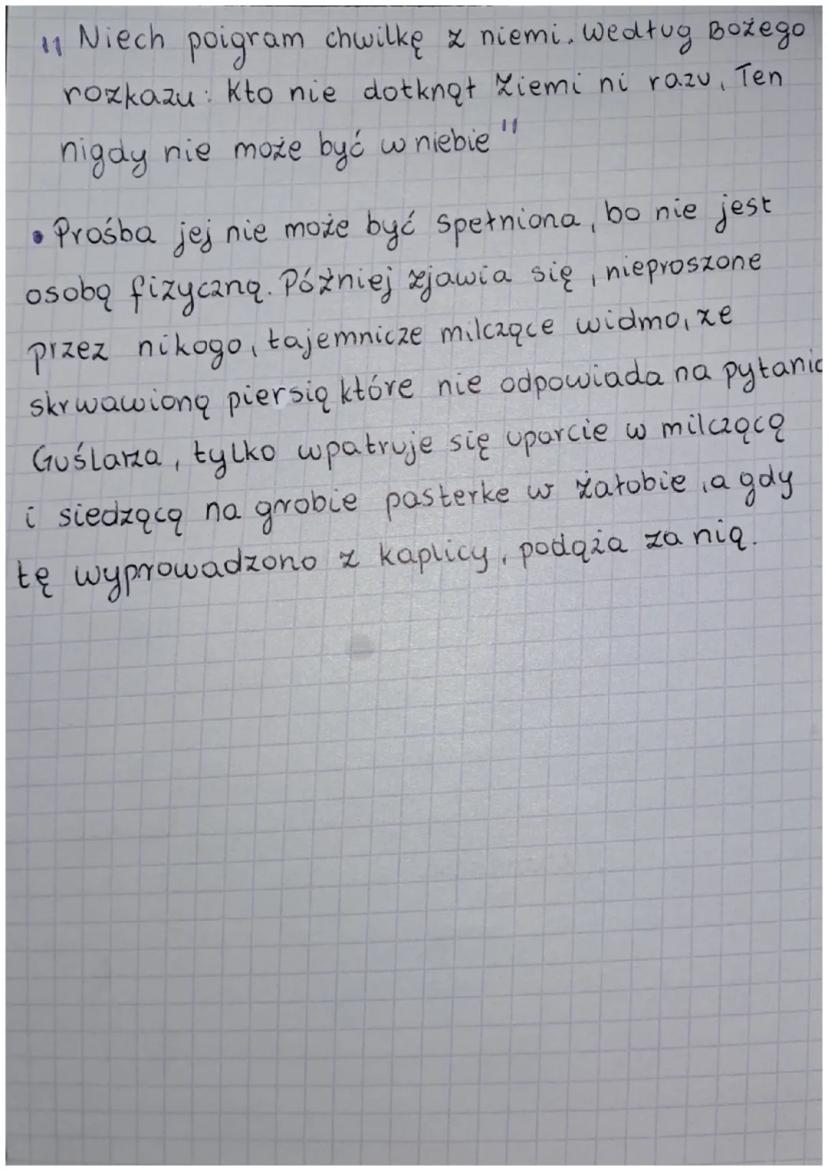 "Niech poigram chwilkę z niemi. Według Bożego
rozkazu: Kto nie dotknął ziemi ni razu, Ten
nigdy nie może być w niebie"
• Prośba jej nie może być spełniona, bo nie jest
osobą fizyczną. Później zjawia się, nieproszone
przez nikogo, tajemnicze milczące widmo, ze
skrwawioną piersią które nie odpowiada na pytanie
Guślarza, tylko wpatruje się uparcie w milczącą
i siedzącą na grobie pasterke w żałobie, a gdy
tę wyprowadzono z kaplicy, podąża za nią.